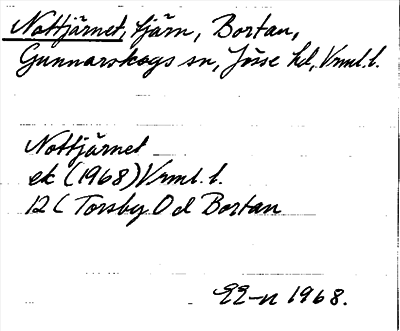 Nottjärnet, tjärn, Bortan,
Gunnarskogs sn, Jösse hd, Vrml.l.
Nottjärnet
ek (1968) Vrml.l.
12 C Torsby 0 d Bortan
EE-n 1968.